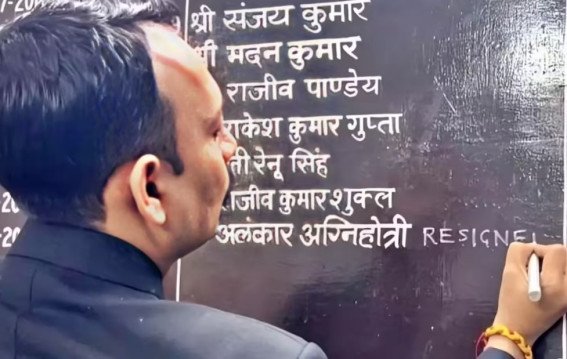 7-20
श्री संजय कुमार
श्री मदन कुमार
राजीव पाण्डेय
राकेश कुमार गुप्ता
ती रेनू सिंह
राजीव कुमार शुक्ल
-20
अलंकार अग्निहोत्री RESIGNE
-20